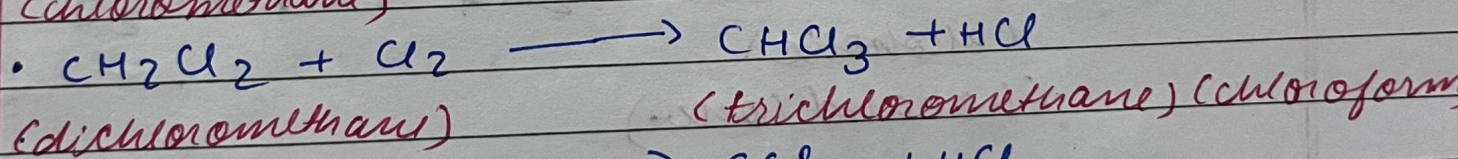 • CH2Cl2 + Cl2 ⟶ CHCl3 + HCl
(dichloromethane) (trichloromethane) (chloroform